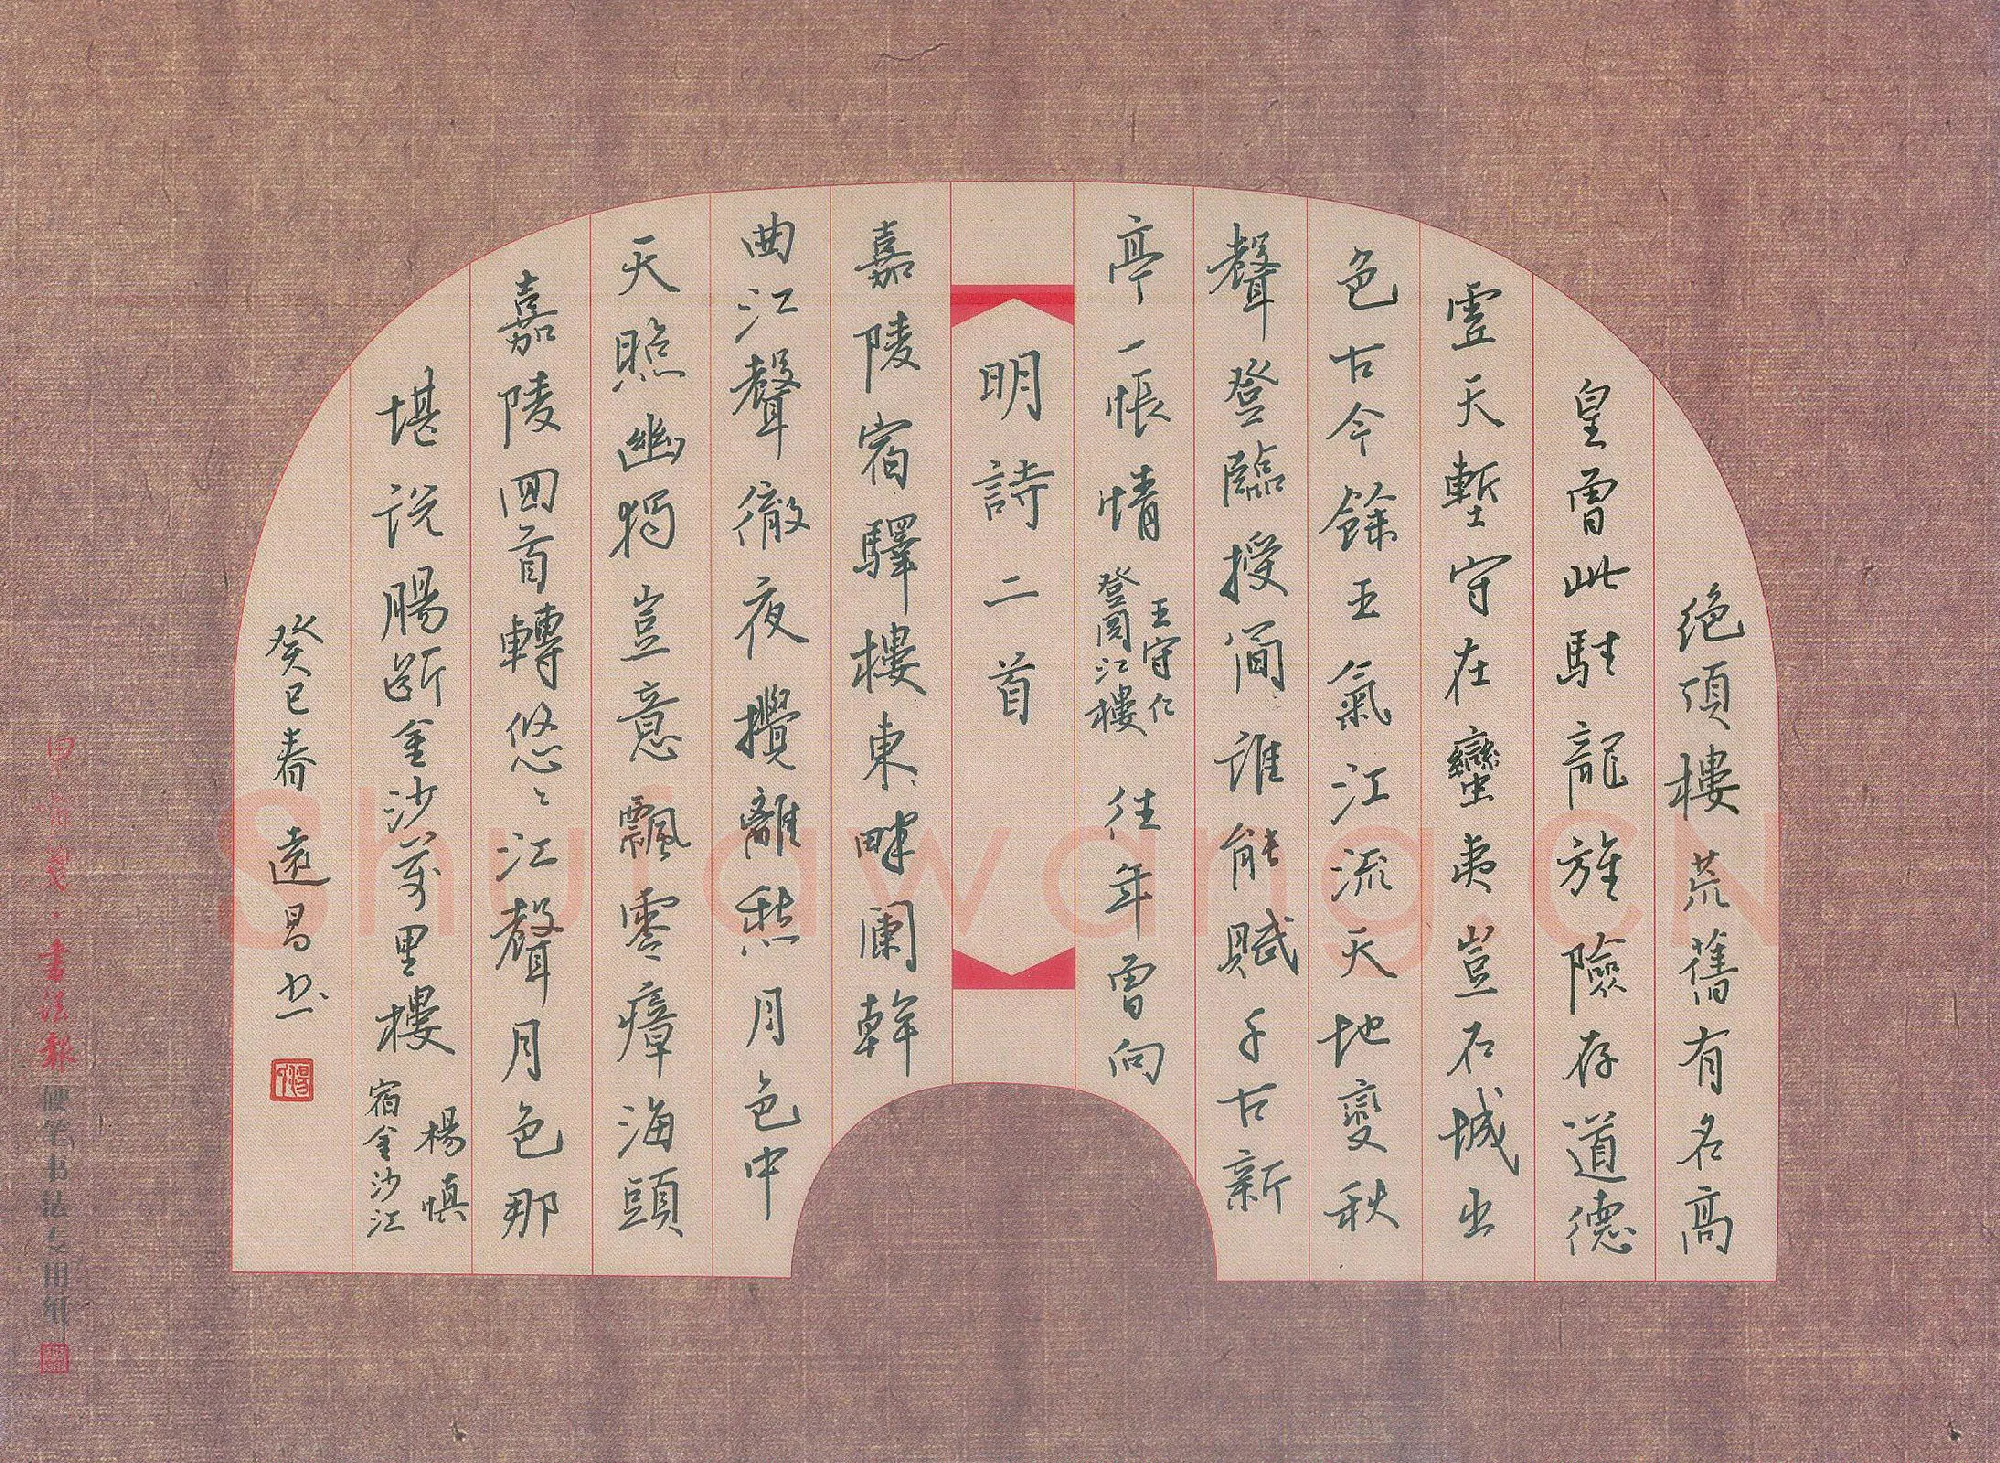 絕頂樓荒舊有名高
皇曾此駐龍旌險存道德
虛天塹守在蠻夷豈石城山
色古今餘王氣江流天地變秋
聲登臨授簡誰能賦千古新
亭一悵情 王守仁 登閱江樓 往年曾向
明詩二首
嘉陵宿驛樓東畔闌幹
曲江聲徹夜攪離愁月色中
天照幽獨豈意飄零瘴海頭
嘉陵回首轉悠〻江聲月色那
堪说腸斷金沙萬里樓 楊慎 宿金沙江
癸巳春 遠昌书
書法報
硬笔书法专用纸
Shufawang.CN